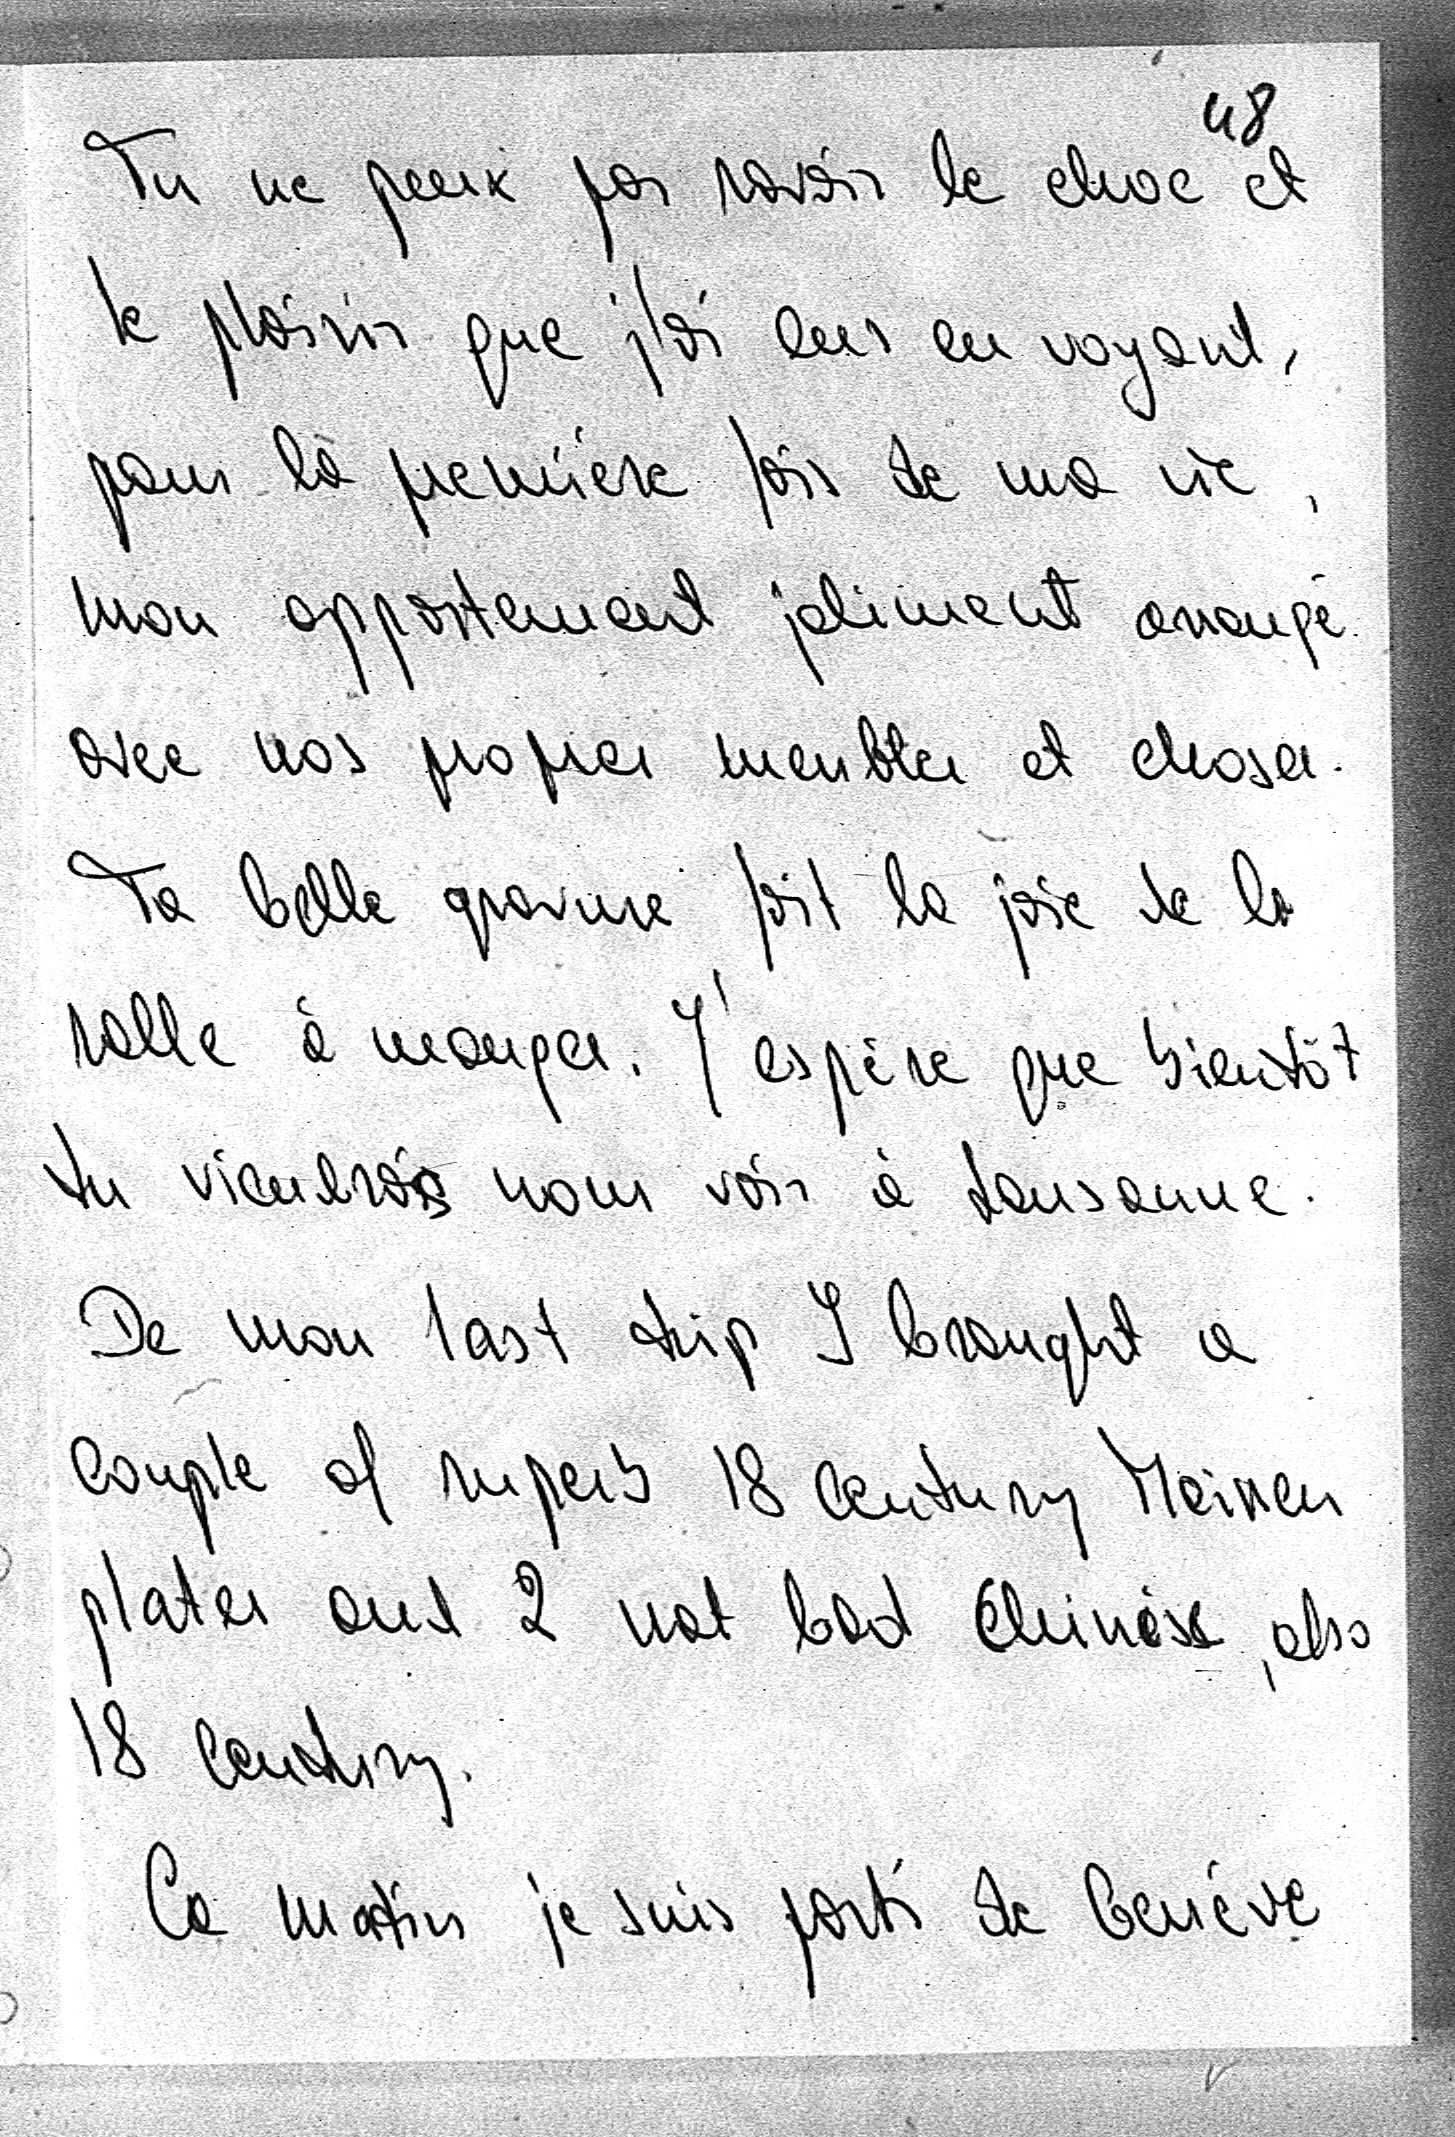 48
Tu ne peux pas savoir le choc et
le plaisir que j'ai eus en voyant,
pour la première fois de ma vie,
mon appartement joliment arrangé
avec nos propres meubles et choses.
Ta belle gravure fait la joie de la
salle à manger. J'espère que bientôt
tu viendrais nous voir à Lausanne.
De mon last trip I brought a
couple of superb 18 century Meissen
plates and 2 not bad Chinese, also
18 century.
Ce matin je suis parti de Genève